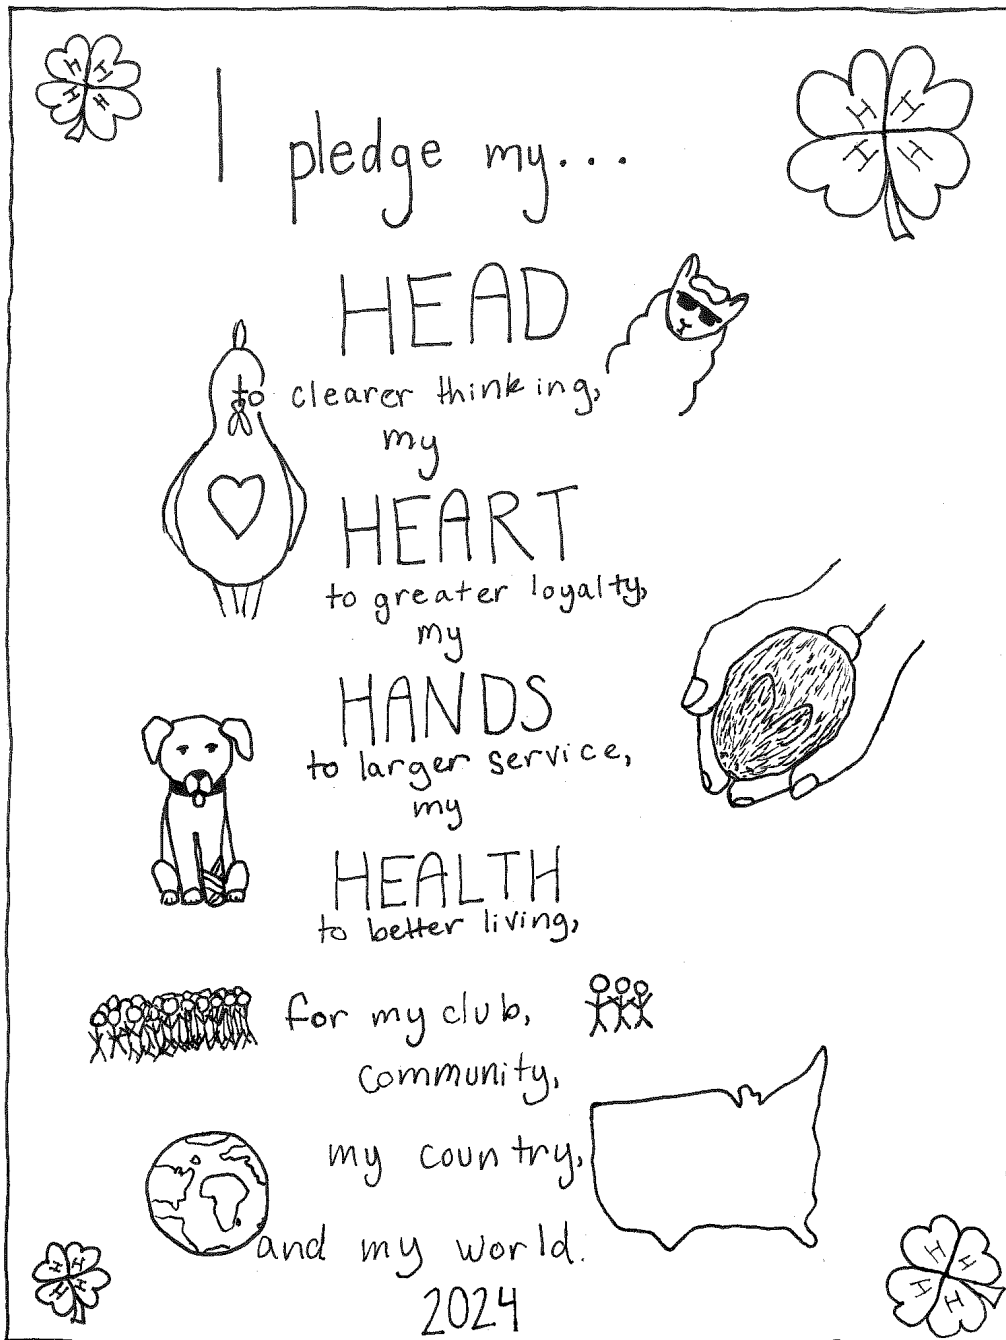 H H
H H
H H
H H
I pledge my...
HEAD
to clearer thinking,
my
HEART
to greater loyalty,
my
HANDS
to larger service,
my
HEALTH
to better living,
for my club,
community,
my country,
and my world.
2024
H H
H H
H H
H H